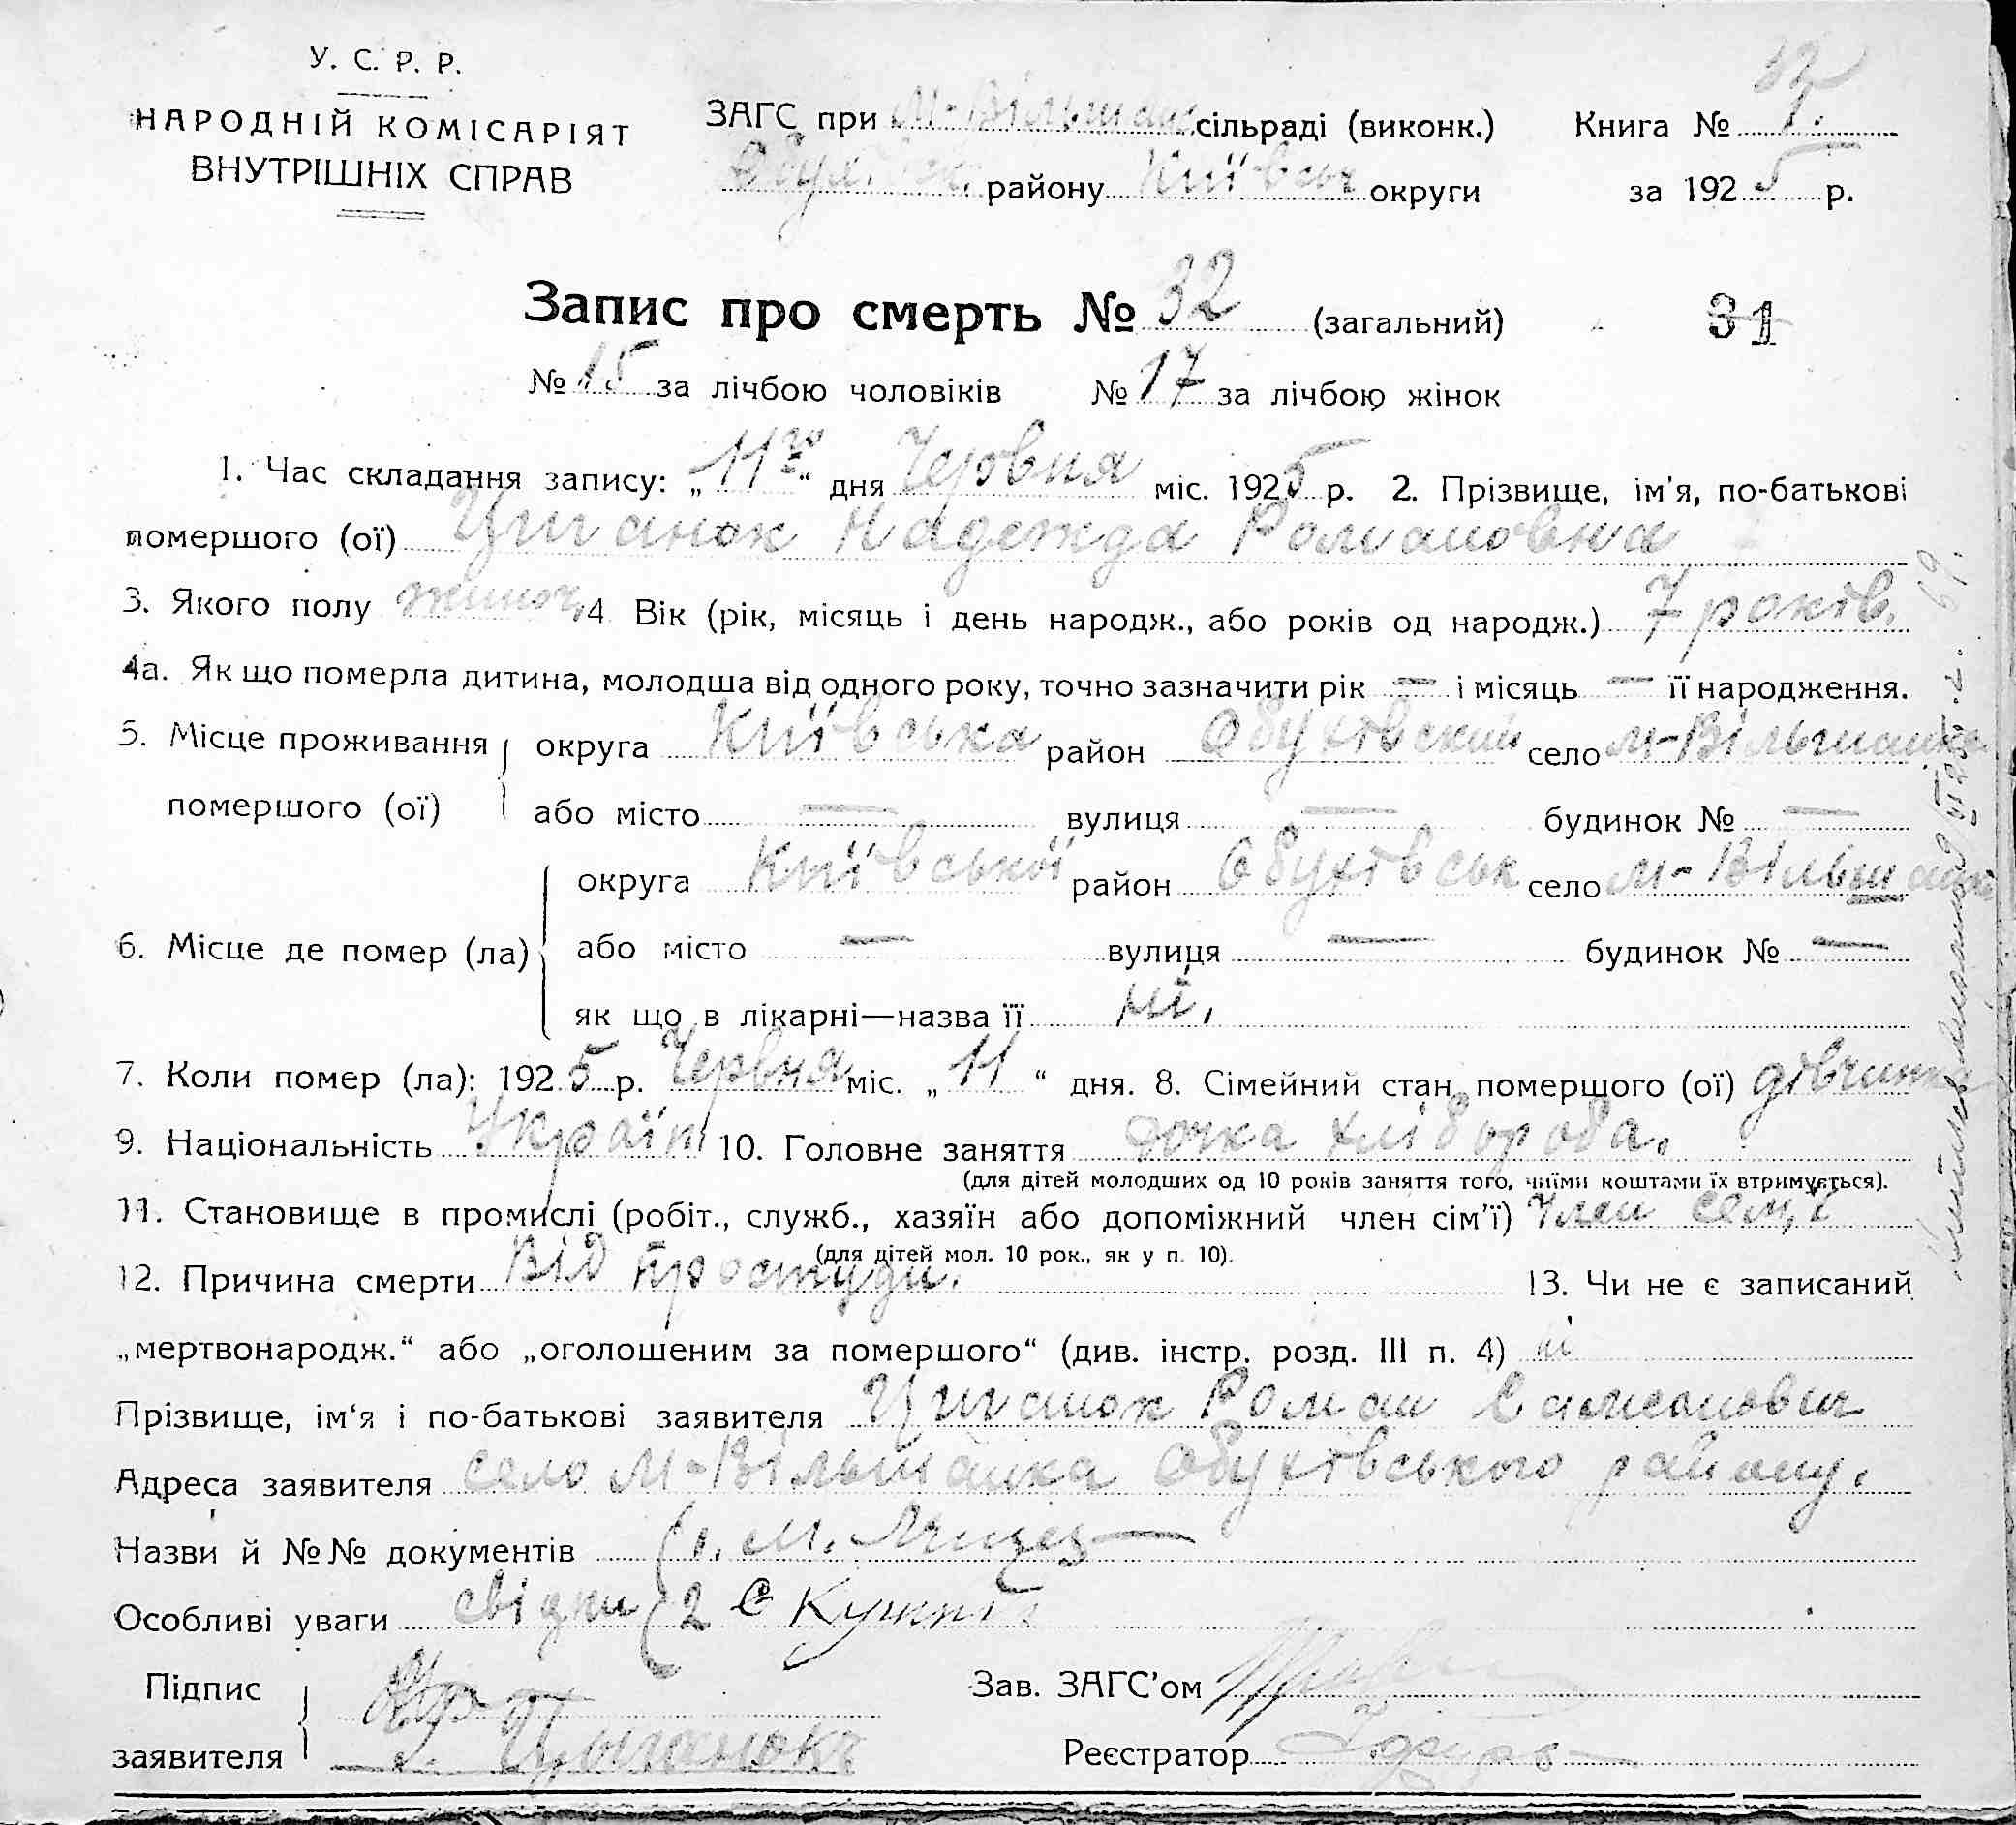 32
У. С. Р. Р.
НАРОДНІЙ КОМІСАРІЯТ
ВНУТРІШНІХ СПРАВ
ЗАГС при М-Вільшанс. сільраді (виконк.) Книга № 1.
району Київськ округи за 1925 р.
Запис про смерть № 32 (загальний) 31
№ 15 за лічбою чоловіків № 17 за лічбою жінок
1. Час складання запису: „11го“ дня Червня міс. 1925 р. 2. Прізвище, ім'я, по-батькові
помершого (ої) Циганок Надежда Романовна
3. Якого полу жиноч. 4 Вік (рік, місяць і день народж., або років од народж.) 7 років.
4а. Як що померла дитина, молодша від одного року, точно зазначити рік — і місяць — її народження.
5. Місце проживання помершого (ої) округа Київська район Обухівский село М-Вільшанка
або місто — вулиця — будинок № —
6. Місце де помер (ла) округа Київської район Обухівськ село М-Вільшанка
або місто — вулиця — будинок № —
як що в лікарні—назва її ні.
7. Коли помер (ла): 1925 р. Червня міс. „11“ дня. 8. Сімейний стан помершого (ої) дівчинка
9. Національність Україн 10. Головне заняття дочка хлібороба.
(для дітей молодших од 10 років заняття того, чиїми коштами їх втримується).
11. Становище в промислі (робіт., служб., хазяїн або допоміжний член сім'ї) Член сем,ї
(для дітей мол. 10 рок., як у п. 10).
12. Причина смерти Від простуди. 13. Чи не є записаний
„мертвонародж.“ або „оголошеним за помершого“ (див. інстр. розд. III п. 4) ні
Прізвище, ім'я і по-батькові заявителя Циганок Роман Самсонович
Адреса заявителя село М-Вільшанка Обухівського району.
Назви й №№ документів (1. М.
Особливі уваги свідки (2 С
Підпис заявителя
Цыганокъ
Зав. ЗАГС'ом
Реєстратор